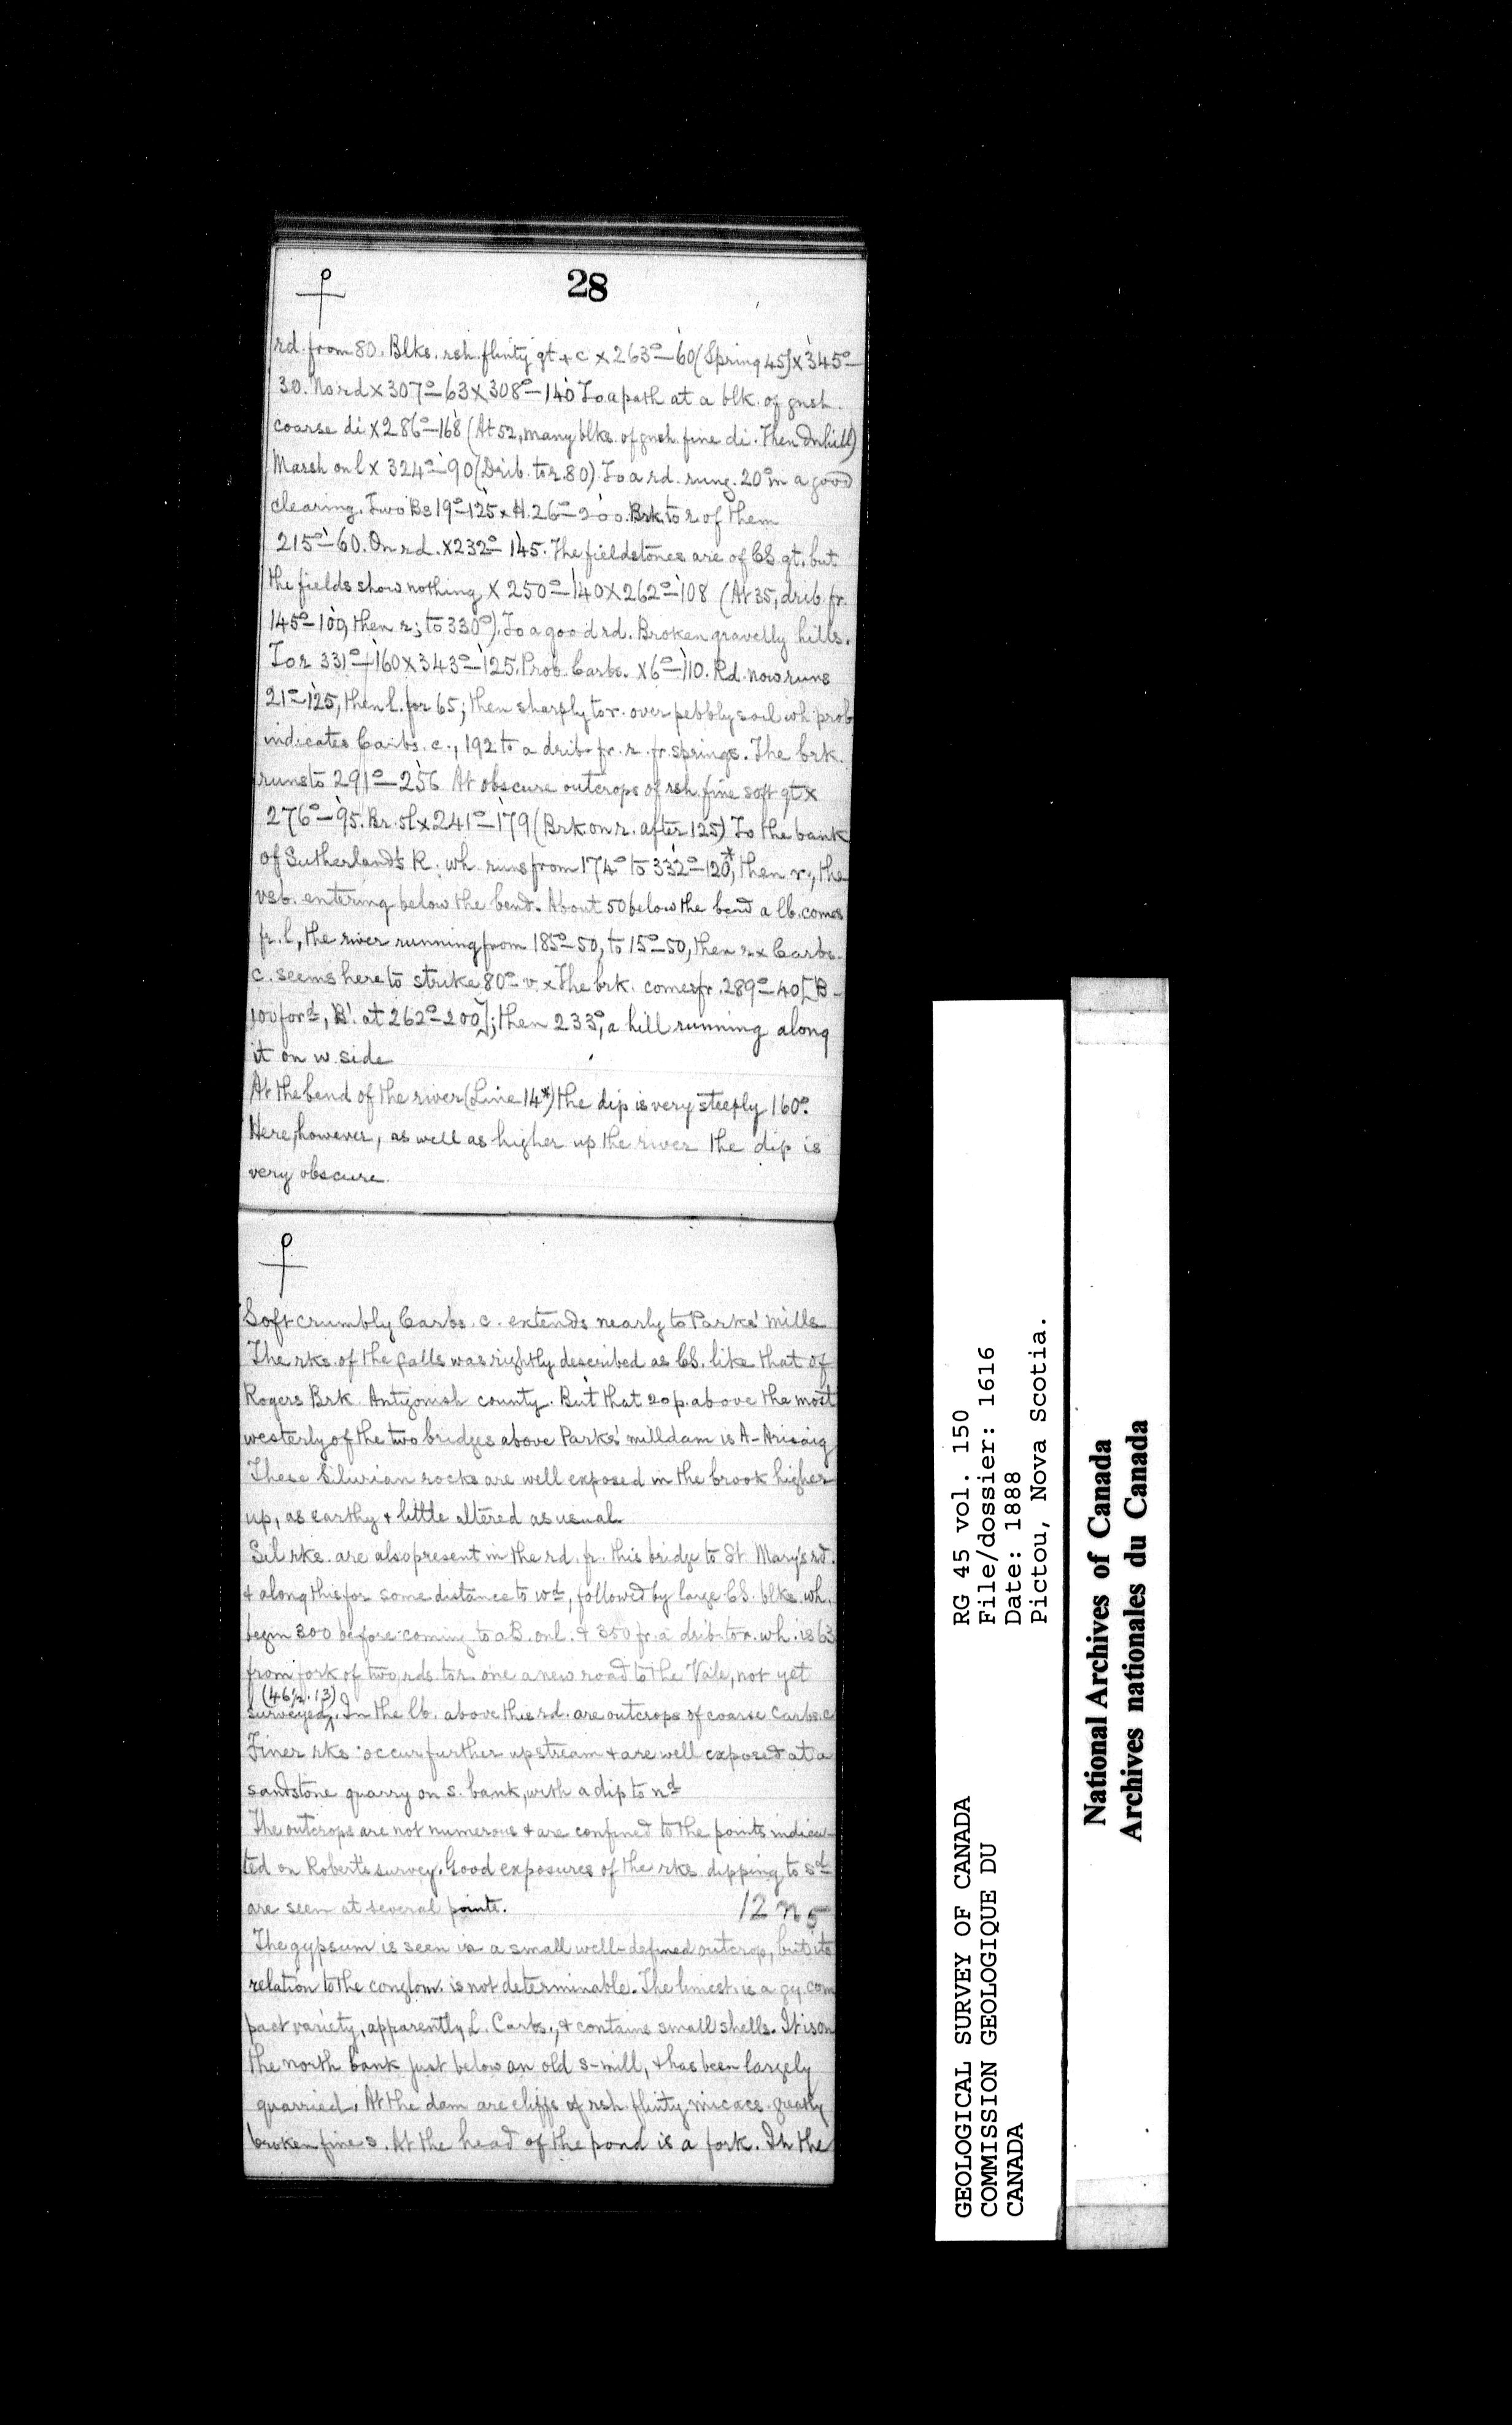 28
rd. from 80. Blks. rsh. flinty qt + c × 263°–60 (Spring 45) × 345°–
30. No rd × 307°–63 × 308°–140 To a path at a blk. of gnsh.
coarse di × 286°–168 (At 52, many blks. of gnsh. fine di. Then dnhill)
Marsh on l × 324°–90 (Drib. to r. 80). To a rd. rung. 20° in a good
clearing. Two Bs 19°–125 × H. 26°–200. Brk. to r of them
215°–60. On rd. × 232°–145. The fieldstones are of CS. qt. but
the fields show nothing × 250°–140 × 262°–108 (At 35, drib. fr.
145°–100, then r; to 330°). To a good rd. Broken gravelly hills.
To r 331°–160 × 343°–125. Prob. Carbs. × 6°–110. Rd. now runs
21°–125, then l. for 65; then sharply to r. over pebbly soil wh. prob
indicates Carbs. c., 192 to a drib. fr. r. fr. springs. The brk.
runs to 291°–256 At obscure outcrops of rsh. fine soft qt ×
276°–95. Br. 51 × 241°–179 (Brk. on r. after 125) To the bank
of Sutherland's R. wh. runs from 174° to 332°–120*, then r., the
vsb. entering below the bend. About 50 below the bend a lb. comes
fr. l, the river running from 185°–50, to 15°–50, then r. × Carbs.
c. seems here to strike 80°–v. × The brk. comes fr. 289°–40 [B–
100 for d, B'. at 262°–200]; then 233°, a hill running along
it on w. side
At the bend of the river (Line 14*) the dip is very steeply 160°.
Here, however, as well as higher up the river the dip is
very obscure.
Soft crumbly Carbs. c. extends nearly to Parks' mills
The rks. of the falls was rightly described as CS. like that of
Rogers Brk. Antigonish county. But that 20 p. above the most
westerly of the two bridges above Parks' milldam is A–Arisaig
These Silurian rocks are well exposed in the brook higher
up, as earthy + little altered as usual.
Sil rks. are also present in the rd. fr. this bridge to St. Mary's rd.
+ along this for some distance to wd, followed by large CS. blks. wh.
begin 300 before coming to a B. on l. + 350 fr. a drib. to r. wh. is 63
from fork of two rds. to r. one a new road to the Vale, not yet
(46½.13)
surveyed. In the lb. above this rd. are outcrops of coarse Carbs. c
Finer rks. occur further upstream + are well exposed at a
sandstone quarry on s. bank, with a dip to nd
The outcrops are not numerous + are confined to the points indica-
ted on Robert's survey. Good exposures of the rks. dipping to sd
are seen at several points. 12 n 5
The gypsum is seen in a small well-defined outcrop, but its
relation to the conglom. is not determinable. The limest. is a gy. com
pact variety, apparently L. Carbs., + contains small shells. It is on
the north bank just below an old s-mill, + has been largely
quarried. At the dam are cliffs of rsh. flinty micacs. greatly
broken fine s. At the head of the pond is a fork. In the
GEOLOGICAL SURVEY OF CANADA
COMMISSION GEOLOGIQUE DU
CANADA
RG 45 vol. 150
File/dossier: 1616
Date: 1888
Pictou, Nova Scotia.
National Archives of Canada
Archives nationales du Canada